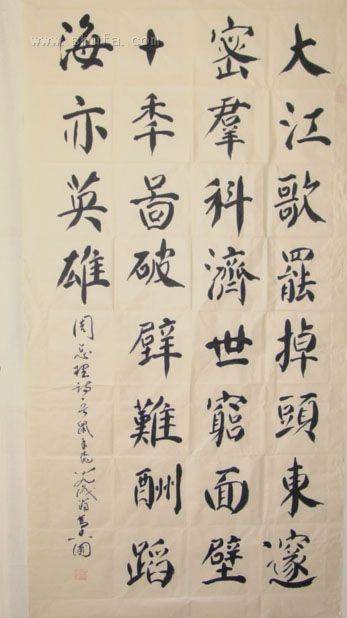 大江歌罷掉頭東邃
密羣科濟世窮面壁
十秊啚破壁難酬蹈
海亦英雄
周总理詩一首